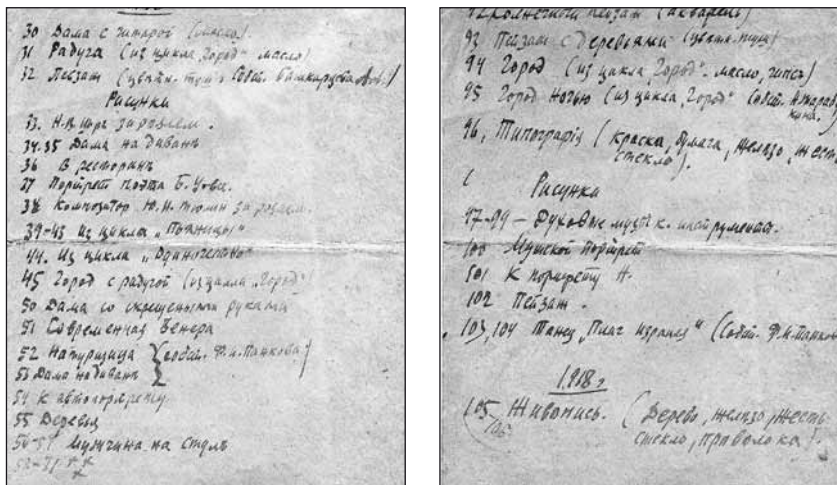 30 Дама с гитарой (масло).
31 Радуга (из цикла "Город" масло)
32 Пейзаж (цветн. тушь Собст.
Рисунки
33. Н.В. за роялем.
34.35 Дама на диванъ
36 В ресторанъ
37 Портрет поэта Б.
38 Композитор Ю.Н. Тюлин за роялем.
39-43 Из цикла "Пьяницы"
44. Из цикла "Одиночество"
45 Город с радугой (из цикла "Город")
50 Дама со скрещеными руками
51 Современная Венера
52 Натурщица
53 Дама на диванъ
(собст. Ф.И. Панкова)
54 К автопортрету
55 Деревья
56-57 Мужчина на стулъ
пейзаж (акварель)
93 Пейзаж с деревьями (цветн. тушь)
94 Город (из цикла "Город". масло, гипсъ)
95 Город ночью (из цикла "Город" Собст.
96, Типографія (краска, бумага, желѣзо, жесть
стекло).
Рисунки
97-99 – Духовые музык. инструменты.
100 Мужской портрет
101 К портрету Н.
102 Пейзаж.
103, 104 Танец "Плач Израиля" (Собст. Ф.И. Панкова
1918 г
105 Живопись. (Дерево, желѣзо, жесть
106
стекло, проволока).